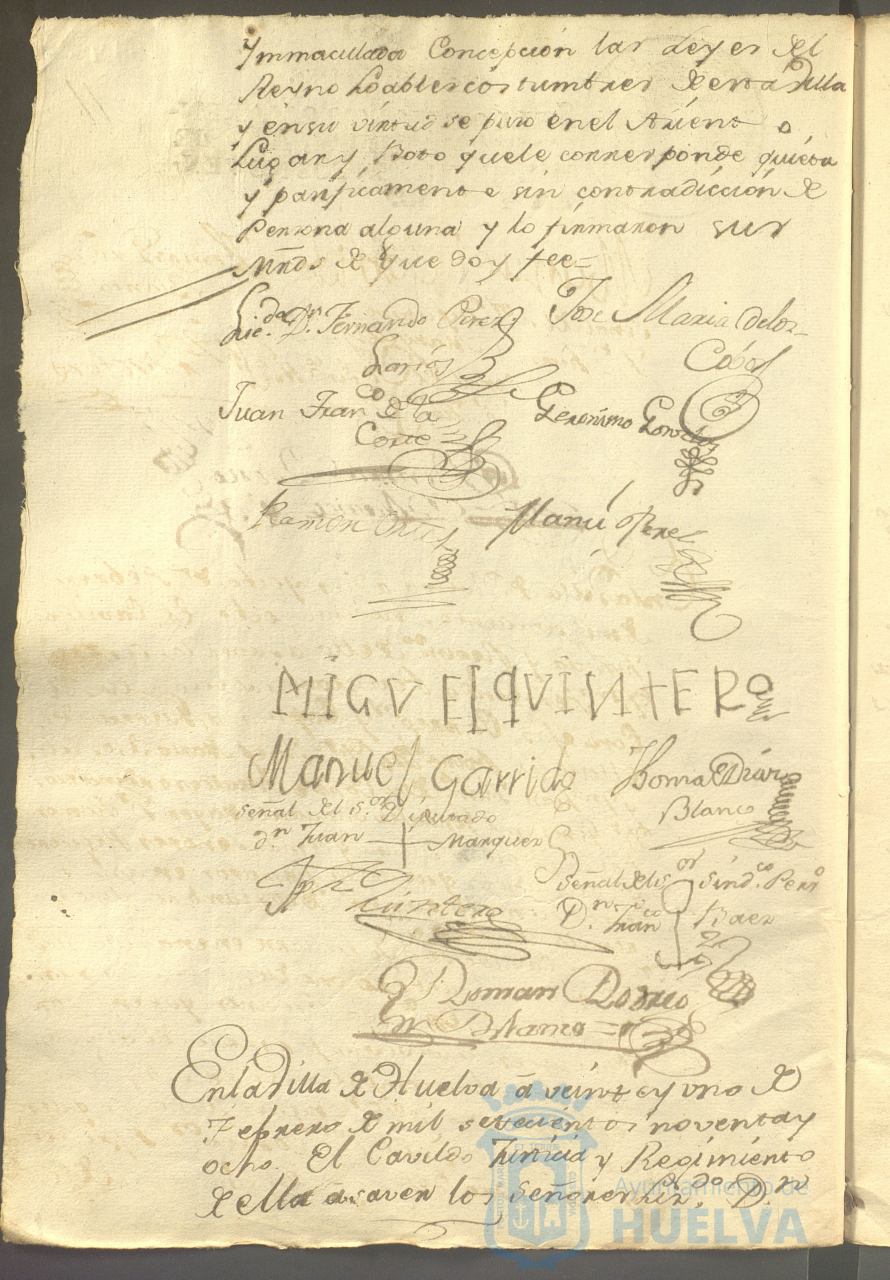 Ymmaculada Concepción las Leyes del
Reyno Loables costumbres de esta Villa
y en su virtud se puso en el Asiento
Lugar y Boto que le corresponde quieta
y pasificamente sin contradicción de
Persona alguna y lo firmaron sus
Mrds de que doy fee=
Licdo. Dn. Fernando Perez
Larios
Jose Maria de los
Cobos
Juan Franco de la
Corte
Geronimo Gonzles
Ramon Ortiz
Manl Perez
MIGVEL QVINTERO
Manuel Garrido
Thomas Diaz
Blanco
señal del sor Diputado
dn Juan + Marquez
Quintero
señal del sor Sindco Persro
Dn Franco Baez
Roman Rosico
Blanco
En la Villa de Huelva a veinte y uno de
Febrero de mil setecientos noventa y
ocho. El Cavildo Justicia y Regimiento
de ella a saver los Señores Lizdo. Dn
Ayuntamiento de
HUELVA